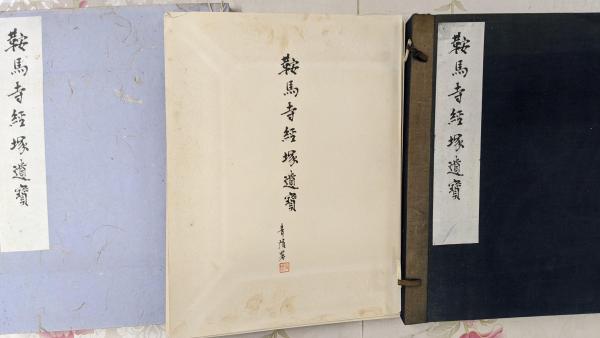 鞍馬寺經塚遺寶
鞍馬寺經塚遺寶
鞍馬寺經塚遺寶